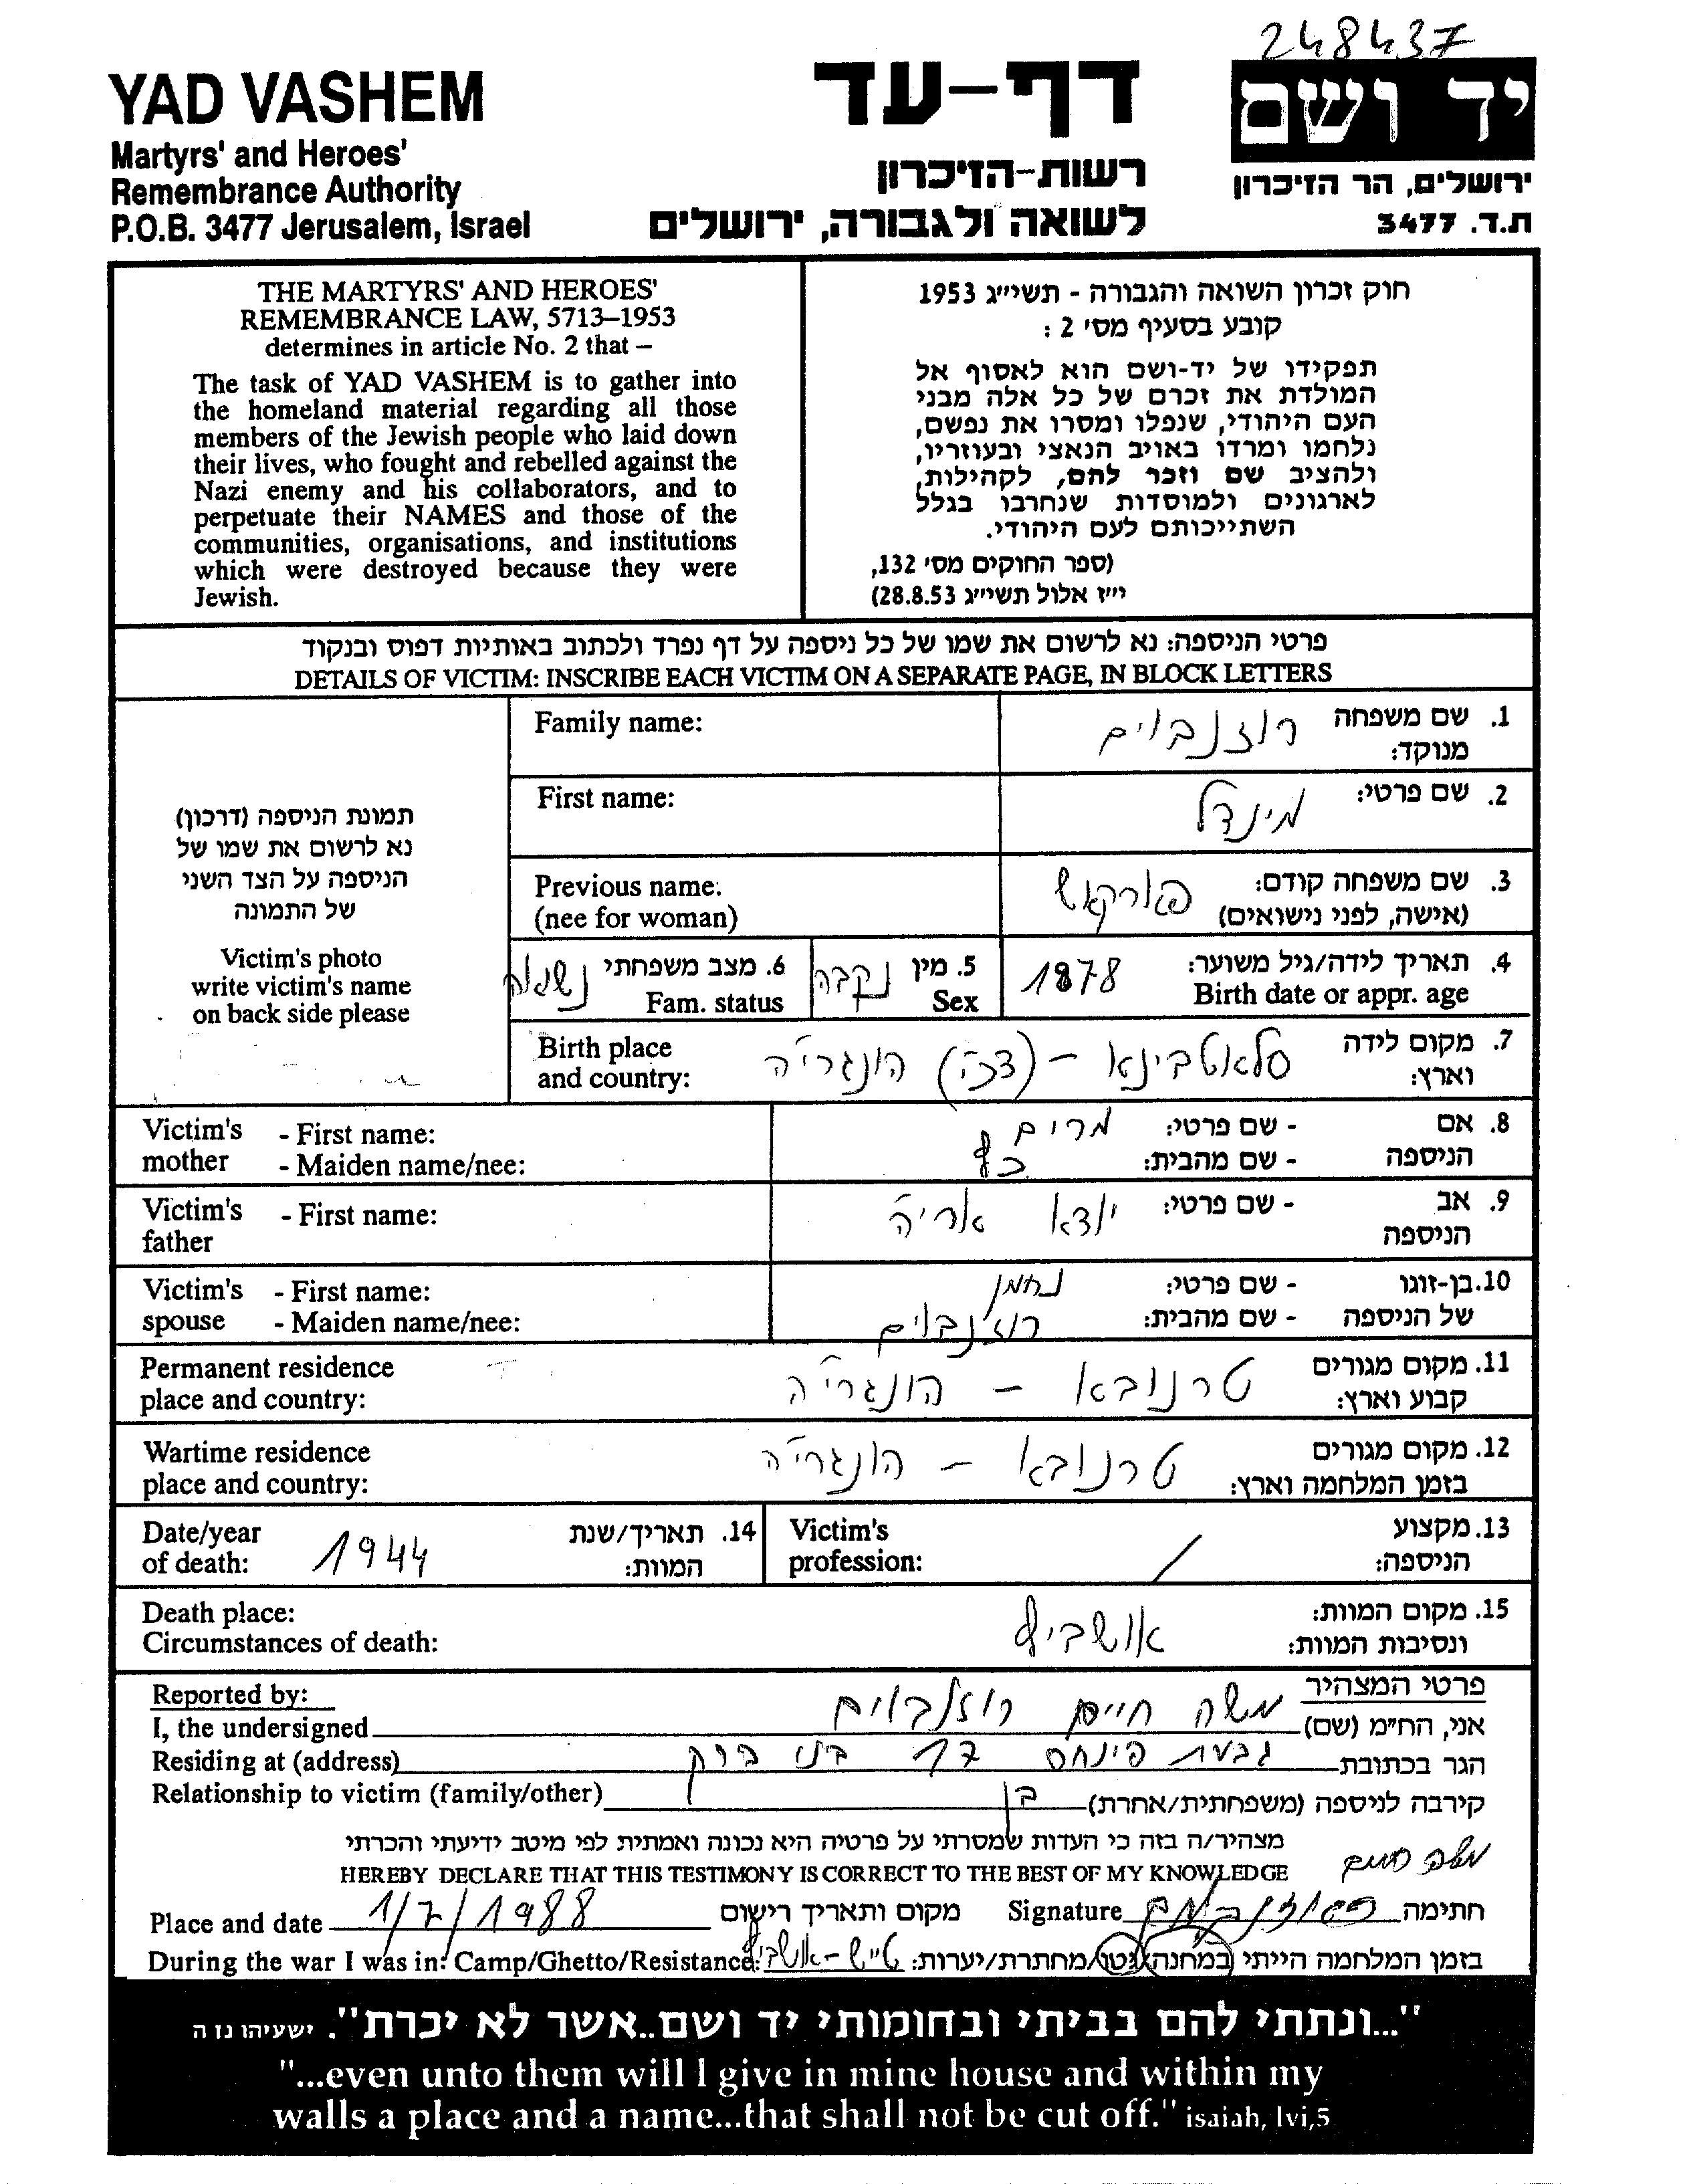 248437
YAD VASHEM
Martyrs' and Heroes'
Remembrance Authority
P.O.B. 3477 Jerusalem, Israel
דף-עד
רשות-הזיכרון
לשואה ולגבורה, ירושלים
יד ושם
ירושלים, הר הזיכרון
ת.ד. 3477
THE MARTYRS' AND HEROES'
REMEMBRANCE LAW, 5713–1953
determines in article No. 2 that –
The task of YAD VASHEM is to gather into
the homeland material regarding all those
members of the Jewish people who laid down
their lives, who fought and rebelled against the
Nazi enemy and his collaborators, and to
perpetuate their NAMES and those of the
communities, organisations, and institutions
which were destroyed because they were
Jewish.
חוק זכרון השואה והגבורה - תשי״ג 1953
קובע בסעיף מס׳ 2 :
תפקידו של יד-ושם הוא לאסוף אל
המולדת את זכרם של כל אלה מבני
העם היהודי, שנפלו ומסרו את נפשם,
נלחמו ומרדו באויב הנאצי ובעוזריו,
ולהציב שם וזכר להם, לקהילות,
לארגונים ולמוסדות שנחרבו בגלל
השתייכותם לעם היהודי.
(ספר החוקים מס׳ 132,
י״ז אלול תשי״ג 28.8.53)
פרטי הניספה: נא לרשום את שמו של כל ניספה על דף נפרד ולכתוב באותיות דפוס ובנקוד
DETAILS OF VICTIM: INSCRIBE EACH VICTIM ON A SEPARATE PAGE, IN BLOCK LETTERS
תמונת הניספה (דרכון)
נא לרשום את שמו של
הניספה על הצד השני
של התמונה
Victim's photo
write victim's name
on back side please
Family name: רוזנבוים 1. שם משפחה
מנוקד:
First name: מינדל 2. שם פרטי:
Previous name: פארקאש 3. שם משפחה קודם:
(nee for woman) (אישה, לפני נישואים)
4. תאריך לידה/גיל משוער: 1878 5. מין נקבה 6. מצב משפחתי נשואה
Birth date or appr. age Sex Fam. status
Birth place סלאטבינא - (צ״כ) הונגריה 7. מקום לידה
and country: וארץ:
Victim's - First name: מרים - שם פרטי: 8. אם
mother - Maiden name/nee: כץ - שם מהבית: הניספה
Victim's - First name: יודא אריה - שם פרטי: 9. אב
father הניספה
Victim's - First name: נחמן - שם פרטי: 10. בן-זוגו
spouse - Maiden name/nee: רוזנבוים - שם מהבית: של הניספה
Permanent residence טרנובא - הונגריה 11. מקום מגורים
place and country: קבוע וארץ:
Wartime residence טרנובא - הונגריה 12. מקום מגורים
place and country: בזמן המלחמה וארץ:
Date/year 1944 14. תאריך/שנת Victim's / 13. מקצוע
of death: המוות: profession: הניספה:
Death place: אושביץ 15. מקום המוות:
Circumstances of death: ונסיבות המוות:
Reported by: פרטי המצהיר
I, the undersigned משה חיים רוזנבוים אני, הח״מ (שם)
Residing at (address) גבעת פינחס 17 בני ברק הגר בכתובת
Relationship to victim (family/other) בן קירבה לניספה (משפחתית/אחרת)
מצהיר/ה בזה כי העדות שמסרתי על פרטיה היא נכונה ואמתית לפי מיטב ידיעתי והכרתי
HEREBY DECLARE THAT THIS TESTIMONY IS CORRECT TO THE BEST OF MY KNOWLEDGE משה חיים
Place and date 1/7/1988 מקום ותאריך רישום Signature רוזנבוים חתימה
During the war I was in: Camp/Ghetto/Resistance: בזמן המלחמה הייתי במחנה/גטו/מחתרת/יערות:
"...ונתתי להם בביתי ובחומותי יד ושם..אשר לא יכרת". ישעיהו נו ה
"...even unto them will I give in mine house and within my
walls a place and a name...that shall not be cut off." isaiah, lvi,5